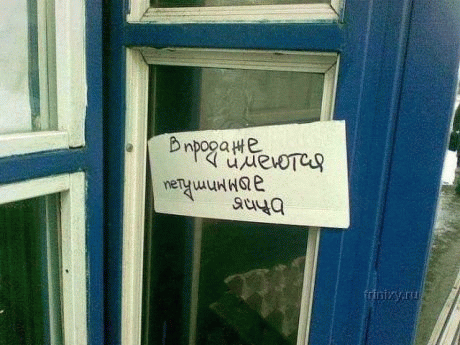 В продаже
имеются
петушинные
яйца
frinixy.ru